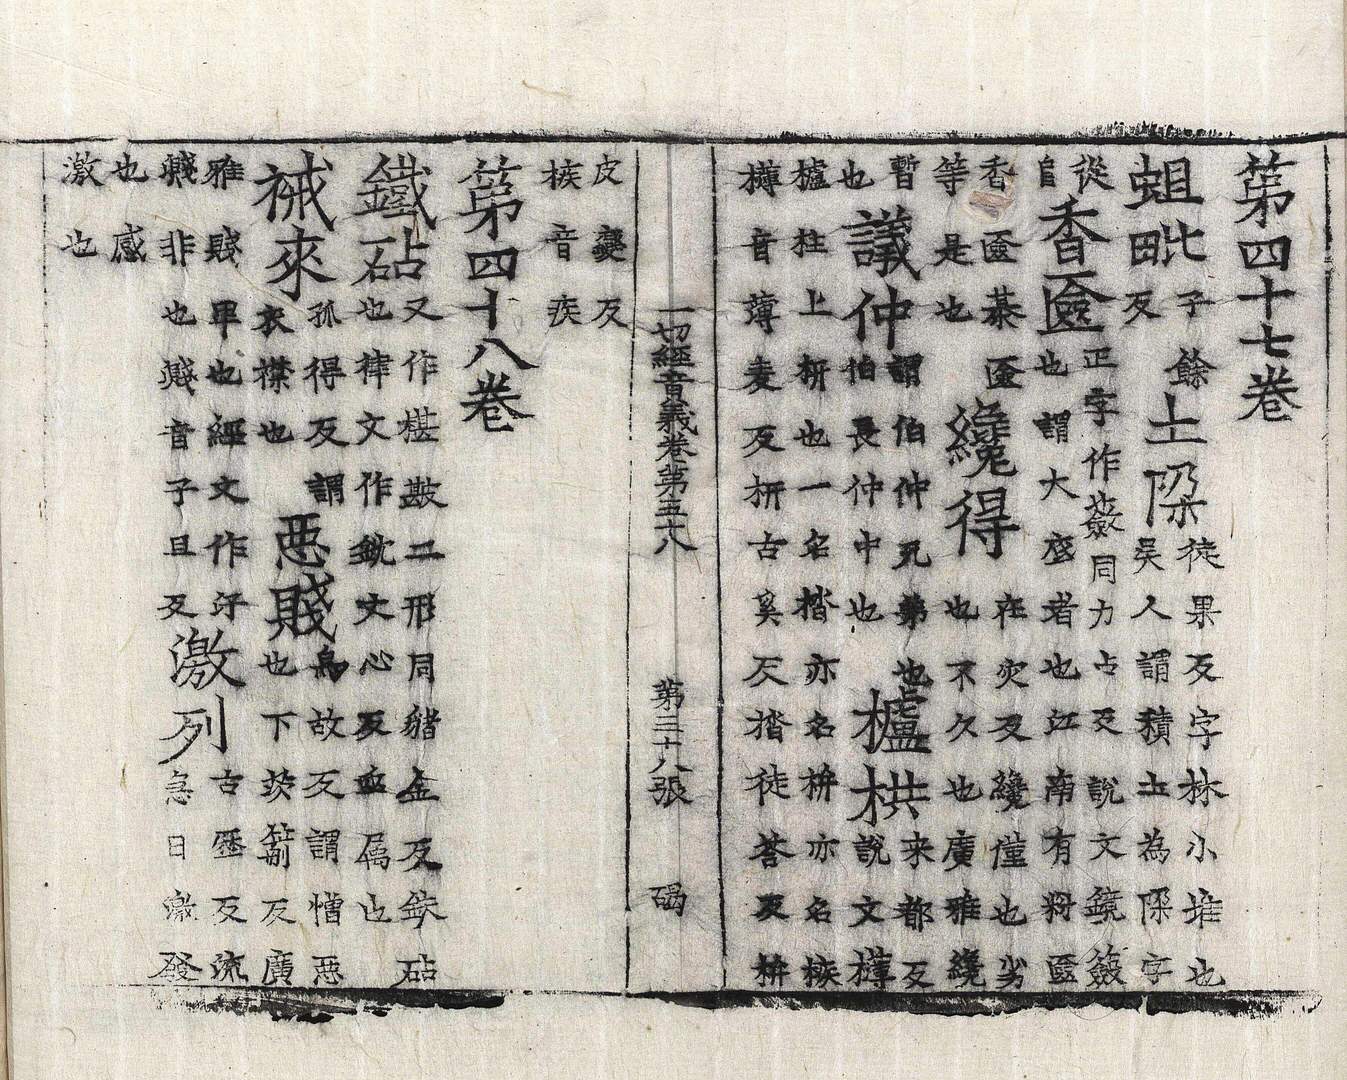 第四十七卷
蛆毗子餘反土徒果反字林小堆也吳人謂積土為字
從𨸏香匳正字作籢同力占反說文鏡籢也謂大底者也江南有粉匳
香匳碁匳等是也纔得在灾反纔僅也劣也不久也廣雅纔
暫也議仲謂伯仲兄弟也伯長仲中也櫨栱来都反說文欂
櫨柱上枅也一名楷亦名枅亦名㭼
欂音薄麦反枅古奚反楷徒荅反枅
一切經音義卷第五十八 第三十八張 碣
皮變反
㭼音疾
第四十八卷
鐵砧又作椹㪛二形同豬金反鈇砧也律文作鈂文心反臿属也
裓來孤得反謂衣襟也惡賤烏故反謂憎惡也下茨箭反廣
雅賤卑也經文作汙濺非也濺音子旦反激列古歷反流急曰激發
也感
激也